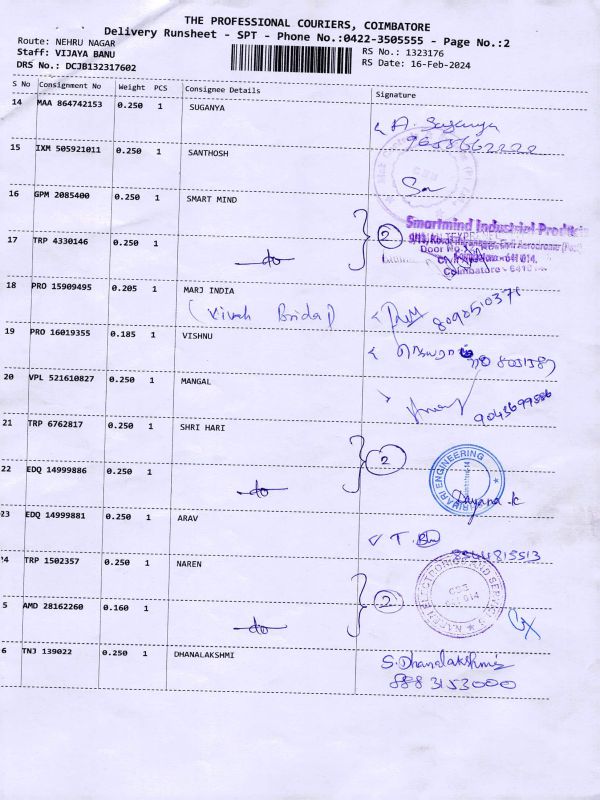 THE PROFESSIONAL COURIERS, COIMBATORE
Delivery Runsheet - SPT - Phone No.:0422-3505555 - Page No.:2
Route: NEHRU NAGAR
Staff: VIJAYA BANU
DRS No.: DCJB132317602
RS No.: 1323176
RS Date: 16-Feb-2024
S No Consignment No Weight PCS Consignee Details Signature
14 MAA 864742153 0.250 1 SUGANYA
A. Suganya
9688662222
15 IXM 505921011 0.250 1 SANTHOSH
16 GPM 2085400 0.250 1 SMART MIND
2
Smartmind Industrial
17 TRP 4330146 0.250 1 do
Coimbatore - 641014.
18 PRO 15909495 0.205 1 MARJ INDIA
(Vivah Bridal)
19 PRO 16019355 0.185 1 VISHNU
20 VPL 521610827 0.250 1 MANGAL
9043699586
21 TRP 6762817 0.250 1 SHRI HARI
2
ENGINEERING
22 EDQ 14999886 0.250 1 do
Dayana .K
23 EDQ 14999881 0.250 1 ARAV
T.
24 TRP 1502357 0.250 1 NAREN
2
5 AMD 28162260 0.160 1 do
6 TNJ 139022 0.250 1 DHANALAKSHMI
S. Dhanalakshmi
8883153000